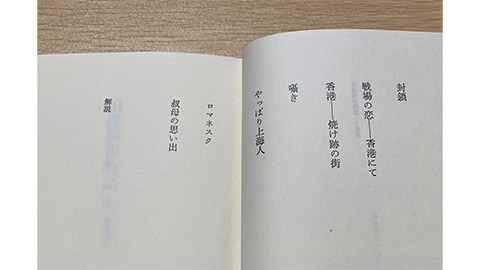 封鎖
戦場の恋――香港にて
香港――焼け跡の街
囁き
やっぱり上海人
ロマネスク
叔母の思い出
解説